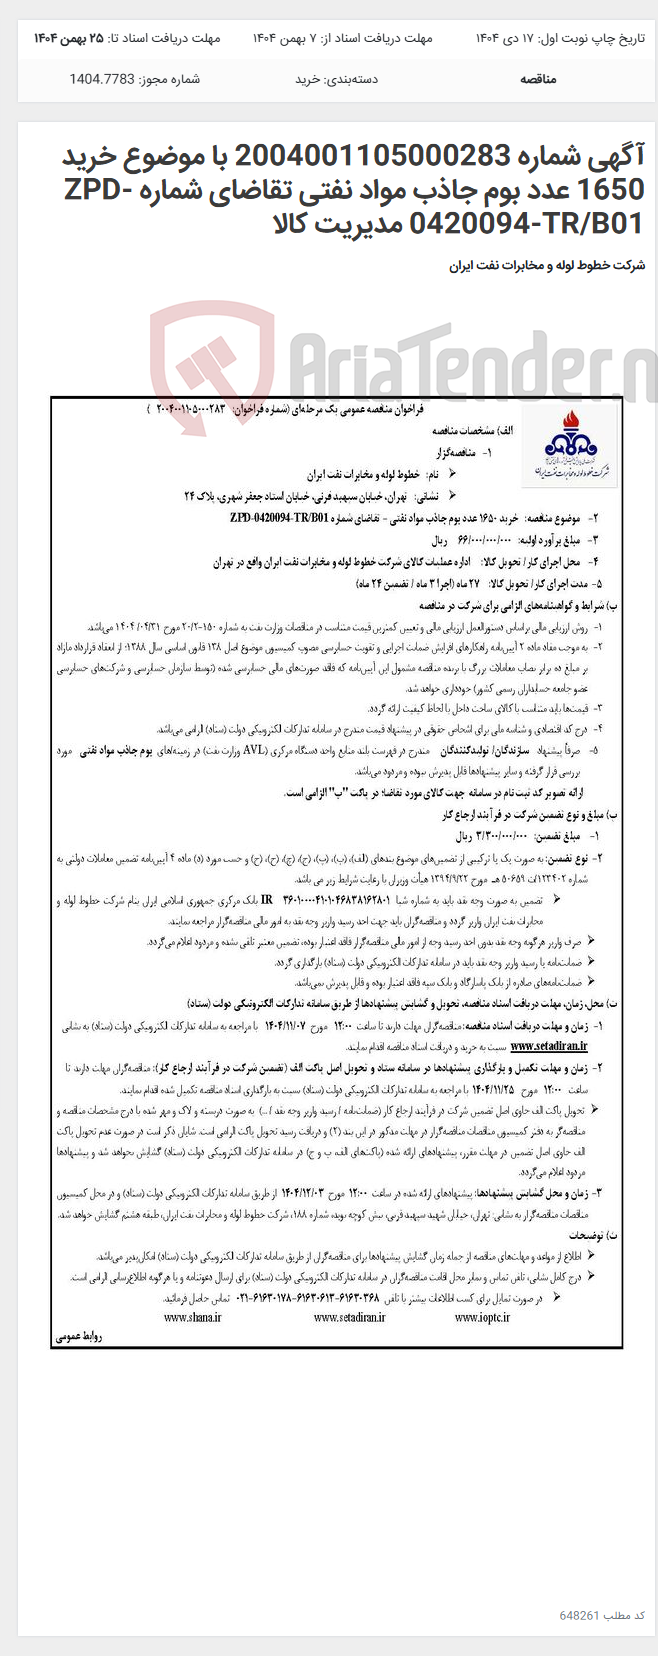 تاریخ چاپ نوبت اول: ۱۷ دی ۱۴۰۴ مهلت دریافت اسناد از: ۷ بهمن ۱۴۰۴ مهلت دریافت اسناد تا: ۲۵ بهمن ۱۴۰۴
مناقصه دسته‌بندی: خرید شماره مجوز: 1404.7783
آگهی شماره 2004001105000283 با موضوع خرید
1650 عدد بوم جاذب مواد نفتی تقاضای شماره ZPD-
0420094-TR/B01 مدیریت کالا
شرکت خطوط لوله و مخابرات نفت ایران
AriaTender.n
فراخوان مناقصه عمومی یک مرحله‌ای (شماره فراخوان: ۲۰۰۴۰۰۱۱۰۵۰۰۰۲۸۳ )
الف) مشخصات مناقصه
۱- مناقصه‌گزار
نام: خطوط لوله و مخابرات نفت ایران
شرکت خطوط لوله و مخابرات نفت ایران
نشانی: تهران، خیابان سپهبد قرنی، خیابان استاد جعفر شهری، پلاک ۲۴
۲- موضوع مناقصه: خرید ۱۶۵۰ عدد بوم جاذب مواد نفتی - تقاضای شماره ZPD-0420094-TR/B01
۳- مبلغ برآورد اولیه: ۶۶/۰۰۰/۰۰۰/۰۰۰ ریال
۴- محل اجرای کار/ تحویل کالا: اداره عملیات کالای شرکت خطوط لوله و مخابرات نفت ایران واقع در تهران
۵- مدت اجرای کار/ تحویل کالا: ۲۷ ماه (اجرا ۳ ماه / تضمین ۲۴ ماه)
ب) شرایط و گواهینامه‌های الزامی برای شرکت در مناقصه
۱- روش ارزیابی مالی براساس دستورالعمل ارزیابی مالی و تعیین کمترین قیمت متناسب در مناقصات وزارت نفت به شماره ۱۵۰-۲۰/۲ مورخ ۱۴۰۴/۰۴/۳۱ می‌باشد.
۲- به موجب مفاد ماده ۲ آیین‌نامه راهکارهای افزایش ضمانت اجرایی و تقویت حسابرسی مصوب کمیسیون موضوع اصل ۱۳۸ قانون اساسی سال ۱۳۸۸؛ از انعقاد قرارداد مازاد
بر مبلغ ده برابر نصاب معاملات بزرگ با برنده مناقصه مشمول این آیین‌نامه که فاقد صورت‌های مالی حسابرسی شده (توسط سازمان حسابرسی و شرکت‌های حسابرسی
عضو جامعه حسابداران رسمی کشور) خودداری خواهد شد.
۳- قیمت‌ها باید متناسب با کالای ساخت داخل با لحاظ کیفیت ارائه گردد.
۴- درج کد اقتصادی و شناسه ملی برای اشخاص حقوقی در پیشنهاد قیمت مندرج در سامانه تدارکات الکترونیکی دولت (ستاد) الزامی می‌باشد.
۵- صرفاً پیشنهاد سازندگان/ تولیدکنندگان مندرج در فهرست بلند منابع واحد دستگاه مرکزی (AVL وزارت نفت) در زمینه/های بوم جاذب مواد نفتی مورد
بررسی قرار گرفته و سایر پیشنهادها قابل پذیرش نبوده و مردود می‌باشد.
ارائه تصویر کد ثبت نام در سامانه جهت کالای مورد تقاضا؛ در پاکت "ب" الزامی است.
پ) مبلغ و نوع تضمین شرکت در فرآیند ارجاع کار
۱- مبلغ تضمین: ۳/۳۰۰/۰۰۰/۰۰۰ ریال
۲- نوع تضمین: به صورت یک یا ترکیبی از تضمین‌های موضوع بندهای (الف)، (ب)، (پ)، (ج)، (چ)، (ح)، (خ) و حسب مورد (د) ماده ۴ آیین‌نامه تضمین معاملات دولتی به
شماره ۱۲۳۴۰۲/ت ۵۰۶۵۹ هـ مورخ ۱۳۹۴/۹/۲۲ هیأت وزیران با رعایت شرایط زیر می باشد.
تضمین به صورت وجه نقد باید به شماره شبا IR ۳۶۰۱۰۰۰۰۴۱۰۱۰۴۶۸۳۸۱۶۲۸۰۱ بانک مرکزی جمهوری اسلامی ایران بنام شرکت خطوط لوله و
مخابرات نفت ایران واریز گردد و مناقصه‌گران باید جهت اخذ رسید واریز وجه نقد به امور مالی مناقصه‌گزار مراجعه نمایند.
صرف واریز هرگونه وجه نقد بدون اخذ رسید وجه از امور مالی مناقصه‌گزار فاقد اعتبار بوده، تضمین معتبر تلقی نشده و مردود اعلام می‌گردد.
ضمانت‌نامه یا رسید واریز وجه نقد باید در سامانه تدارکات الکترونیکی دولت (ستاد) بارگذاری گردد.
ضمانت‌نامه‌های صادره از بانک پاسارگاد و بانک سپه فاقد اعتبار بوده و قابل پذیرش نمی‌باشد.
ت) محل، زمان، مهلت دریافت اسناد مناقصه، تحویل و گشایش پیشنهادها از طریق سامانه تدارکات الکترونیکی دولت (ستاد)
۱- زمان و مهلت دریافت اسناد مناقصه: مناقصه‌گران مهلت دارند تا ساعت ۱۲:۰۰ مورخ ۱۴۰۴/۱۱/۰۷ با مراجعه به سامانه تدارکات الکترونیکی دولت (ستاد) به نشانی
www.setadiran.ir نسبت به خرید و دریافت اسناد مناقصه اقدام نمایند.
۲- زمان و مهلت تکمیل و بارگذاری پیشنهادها در سامانه ستاد و تحویل اصل پاکت الف (تضمین شرکت در فرآیند ارجاع کار): مناقصه‌گران مهلت دارند تا
ساعت ۱۲:۰۰ مورخ ۱۴۰۴/۱۱/۲۵ با مراجعه به سامانه تدارکات الکترونیکی دولت (ستاد) نسبت به بارگذاری اسناد مناقصه تکمیل شده اقدام نمایند.
تحویل پاکت الف حاوی اصل تضمین شرکت در فرآیند ارجاع کار (ضمانت‌نامه / رسید واریز وجه نقد / ...) به صورت دربسته و لاک و مهر شده با درج مشخصات مناقصه و
مناقصه‌گر به دفتر کمیسیون مناقصات مناقصه‌گزار در مهلت مذکور در این بند (۲) و دریافت رسید تحویل پاکت الزامی است. شایان ذکر است در صورت عدم تحویل پاکت
الف حاوی اصل تضمین در مهلت مقرر، پیشنهادهای ارائه شده (پاکت‌های الف، ب و ج) در سامانه تدارکات الکترونیکی دولت (ستاد) گشایش نخواهد شد و پیشنهادها
مردود اعلام می‌گردد.
۳- زمان و محل گشایش پیشنهادها: پیشنهادهای ارائه شده در ساعت ۱۲:۰۰ مورخ ۱۴۰۴/۱۲/۰۳ از طریق سامانه تدارکات الکترونیکی دولت (ستاد) و در محل کمیسیون
مناقصات مناقصه‌گزار به نشانی: تهران، خیابان شهید سپهبد قرنی، نبش کوچه نوید، شماره ۱۸۸، شرکت خطوط لوله و مخابرات نفت ایران، طبقه هشتم گشایش خواهد شد.
ث) توضیحات
اطلاع از مواعد و مهلت‌های مناقصه از جمله زمان گشایش پیشنهادها برای مناقصه‌گران از طریق سامانه تدارکات الکترونیکی دولت (ستاد) امکان‌پذیر می‌باشد.
درج کامل نشانی، تلفن تماس و نمابر محل اقامت مناقصه‌گران در سامانه تدارکات الکترونیکی دولت (ستاد) برای ارسال دعوتنامه و یا هرگونه اطلاع‌رسانی الزامی است.
در صورت تمایل برای کسب اطلاعات بیشتر با تلفن ۶۱۶۳۰۳۶۸-۶۱۶۳۰۶۱۳-۶۱۶۳۰۱۷۸-۰۲۱ تماس حاصل فرمائید.
www.ioptc.ir www.setadiran.ir www.shana.ir
روابط عمومی
کد مطلب 648261